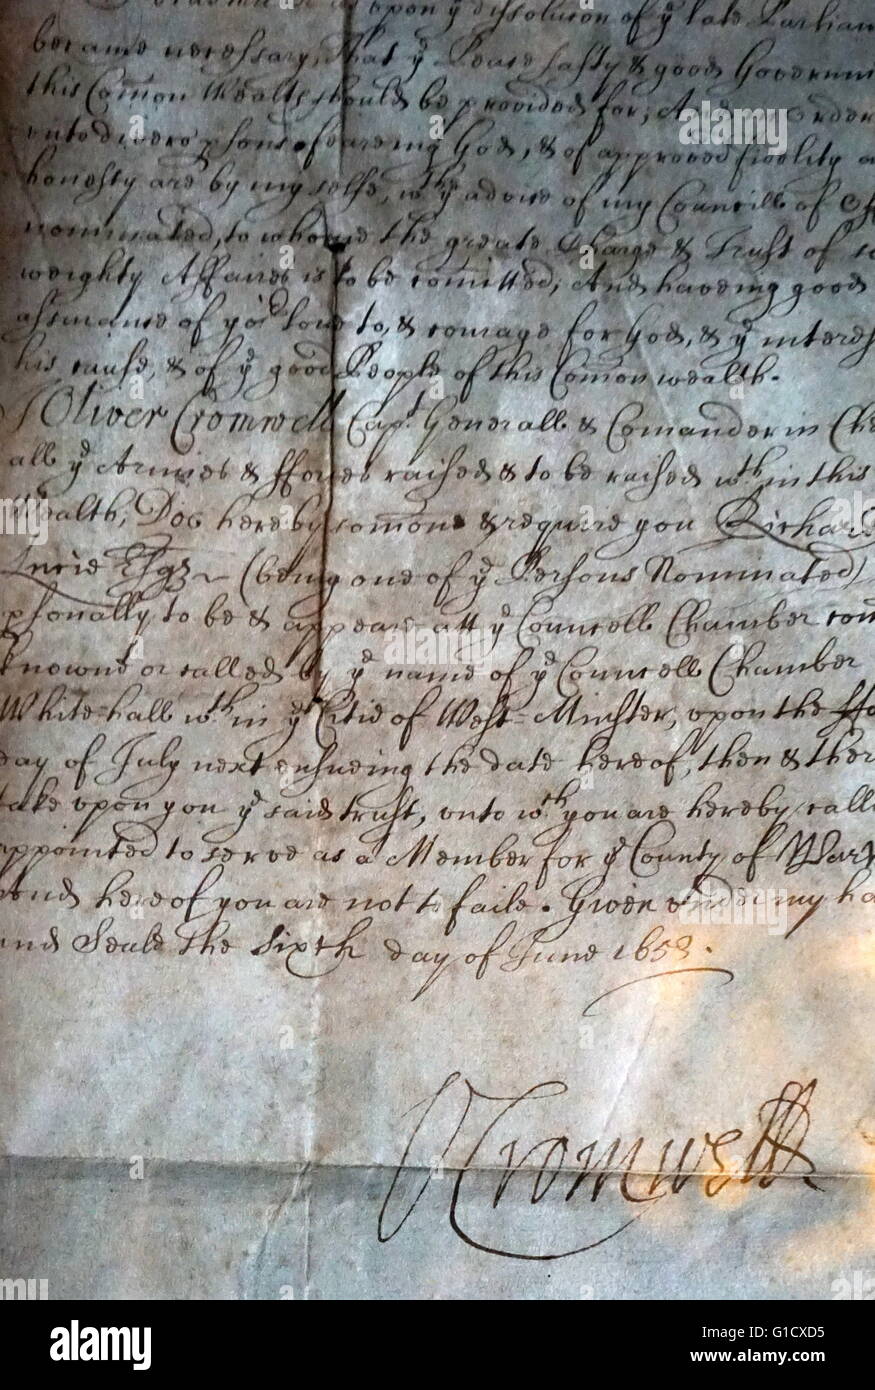 upon yᵉ dissolucon of yᵉ late Parliam
became necessary, that yᵉ Peace safty & good Governm
this Com̄on Wealth should be provided for; And in order
unto divers psons fearing God, & of approved fidelity a
honesty are by my selfe, wᵗʰ yᵉ advice of my Councill of
nominated, to whome the greate Charge & Trust of so
weighty Affaires is to be com̄itted, And haveing good
assurance of yoʳ Love to, & courage for God, & yᵉ interes
his cause, & of yᵉ good People of this Com̄on wealth.
I Oliver Cromwell Capᵗ Generall & Com̄ander in Che
all yᵉ Armies & fforces raised & to be raised wᵗʰin this
Wealth, Doe hereby som̄on & require you Richard
Lucie Esqʳ (being one of yᵉ Persons Nominated)
psonally to be & appeare att yᵉ Councell Chamber com
knowne or called by yᵉ name of yᵉ Councell Chamber
White-hall wᵗʰin yᵉ Citie of West-Minster, upon the ffo
day of July next ensueing the date hereof, then & ther
take upon you yᵉ said trust, unto wᶜʰ you are hereby calle
appointed to serve as a Member for yᵉ County of Warw
And hereof you are not to faile. Given under my ha
and Seale the sixth day of June 1653.
O Cromwell
alamy stock photo
alamy
Image ID: G1CXD5
www.alamy.com